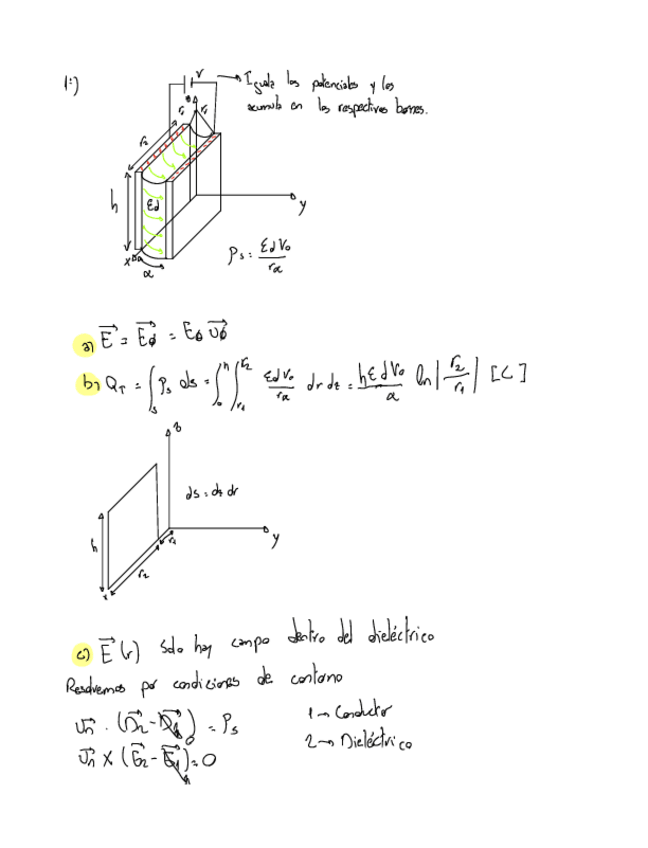 1:)
V → Iguala los potenciales y los
acumula en los respectivos bornes.
r₂ r₁ r₁
h εd y
x α
ρs = εd V₀ / rα
a) E⃗ = E⃗d = Eϕ U⃗ϕ
b) Q_T = ∫_s ρs ds = ∫₀^h ∫_{r₁}^{r₂} εd V₀ / rα dr dz = hεd V₀ / α ln|r₂/r₁| [C]
z
ds = dz dr
h r₁ y
x r₂
c) E⃗(r) Solo hay campo dentro del dieléctrico
Resolvemos por condiciones de contorno
U⃗n · (D⃗2 - D⃗1) = ρs 0
1 → Conductor
U⃗n × (E⃗2 - E⃗1) = 0
2 → Dieléctrico